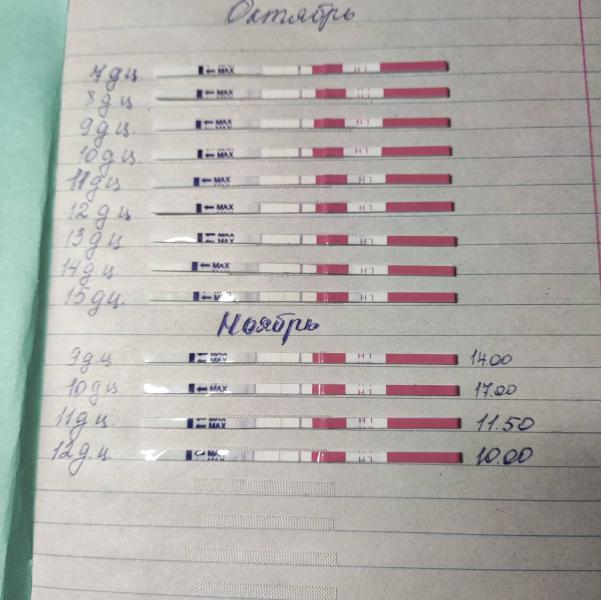 Октябрь
7 д ц MAX LH
8 д ц MAX LH
9 д ц MAX LH
10 д ц MAX LH
11 д ц MAX LH
12 д ц MAX LH
13 д ц MAX LH
14 д ц MAX LH
15 д ц. MAX LH
Ноябрь
9 д.ц MAX LH 14.00
10 д ц MAX LH 17.00
11 д ц MAX LH 11.50
12 д.ц. MAX LH 10.00